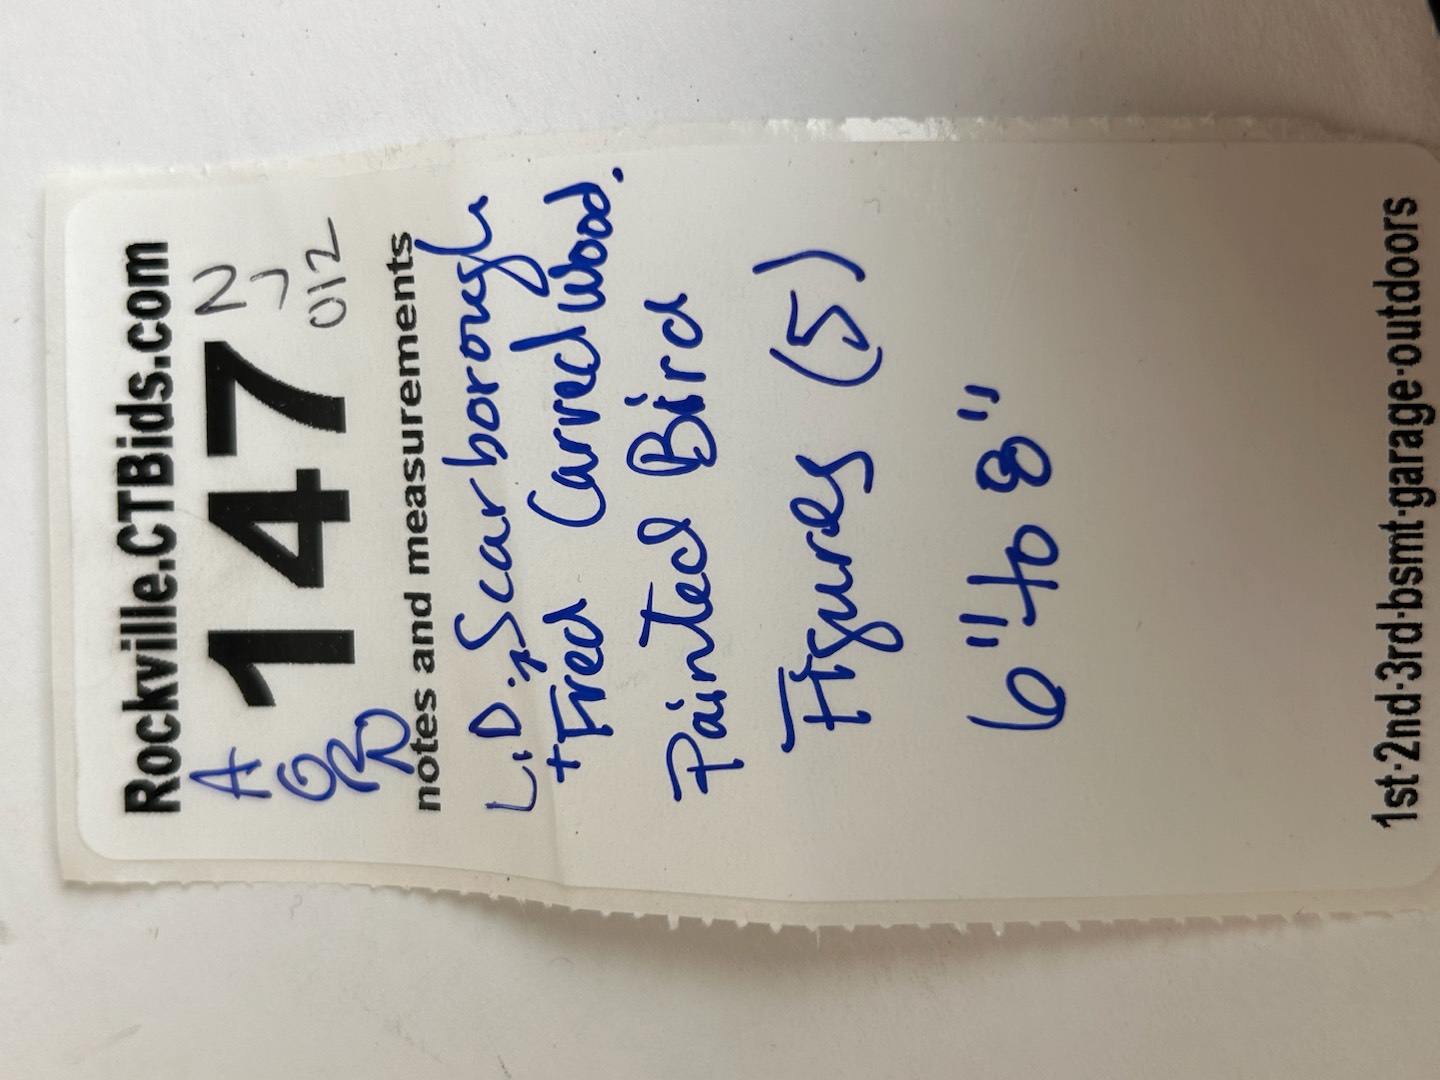 Rockville.CTBids.com
A 147 27
012
notes and measurements
L.D. Scarborough
+ Fred Carved Wood.
Painted Bird
Figures (5)
6" to 8"
1st·2nd·3rd·bsmt·garage·outdoors